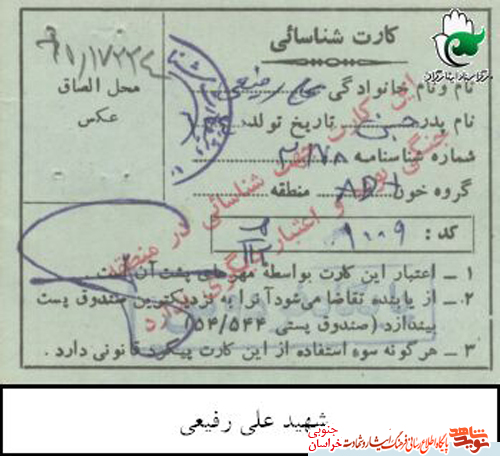 کارت شناسائی
۹۰/۱۷۲۲۴
محل الصاق
عکس
نام و نام خانوادگی علی رفیعی
نام پدر حسن تاریخ تولد
شماره شناسنامه ۲۱۷۸
گروه خون منطقه
کد : ۹۰۰۹
این کارت جهت شناسائی در منطقه
جنگی بوده و اعتبار دیگری ندارد
۱ ـ اعتبار این کارت بواسطهٔ مهرهای پشت آن است.
۲ ـ از یابنده تقاضا می‌شود آنرا به نزدیکترین صندوق پست
بیندازد (صندوق پستی ۵۴/۵۴۴)
۳ ـ هرگونه سوء استفاده از این کارت پیگرد قانونی دارد .
شهید علی رفیعی
نوید شاهد
پایگاه اطلاع رسانی فرهنگ ایثار و شهادت
خراسان جنوبی